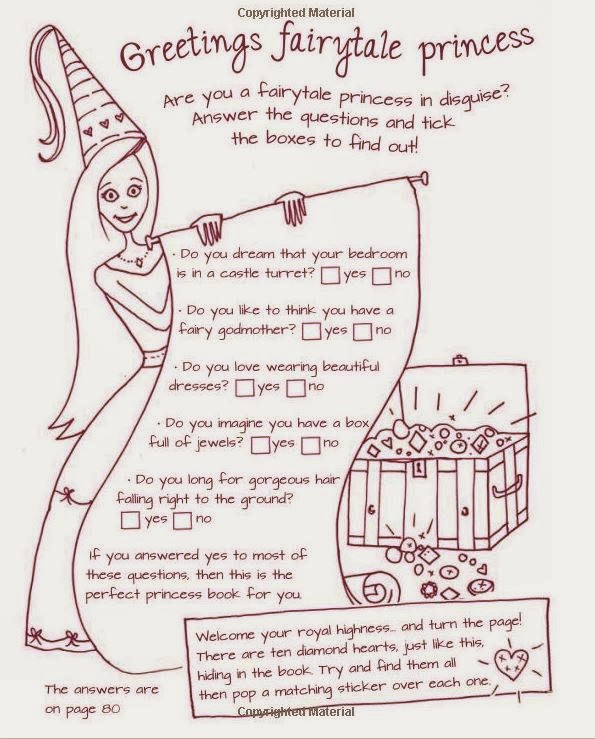 Copyrighted Material
Greetings fairytale princess
Are you a fairytale princess in disguise?
Answer the questions and tick
the boxes to find out!
· Do you dream that your bedroom
is in a castle turret? yes no
· Do you like to think you have a
fairy godmother? yes no
· Do you love wearing beautiful
dresses? yes no
· Do you imagine you have a box
full of jewels? yes no
· Do you long for gorgeous hair
falling right to the ground?
yes no
If you answered yes to most of
these questions, then this is the
perfect princess book for you.
Welcome your royal highness... and turn the page!
There are ten diamond hearts, just like this,
hiding in the book. Try and find them all
then pop a matching sticker over each one.
The answers are
on page 80
Copyrighted Material